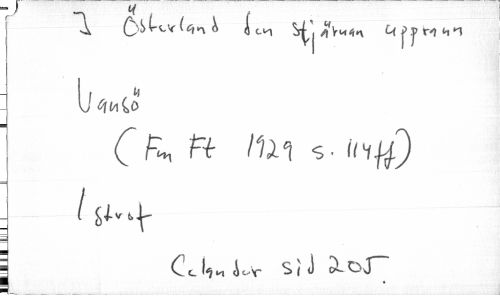 I Österland den stjärnan upprann
Vansö
(Fm Ft 1929 s. 114ff)
1 strof
Celander sid 205.